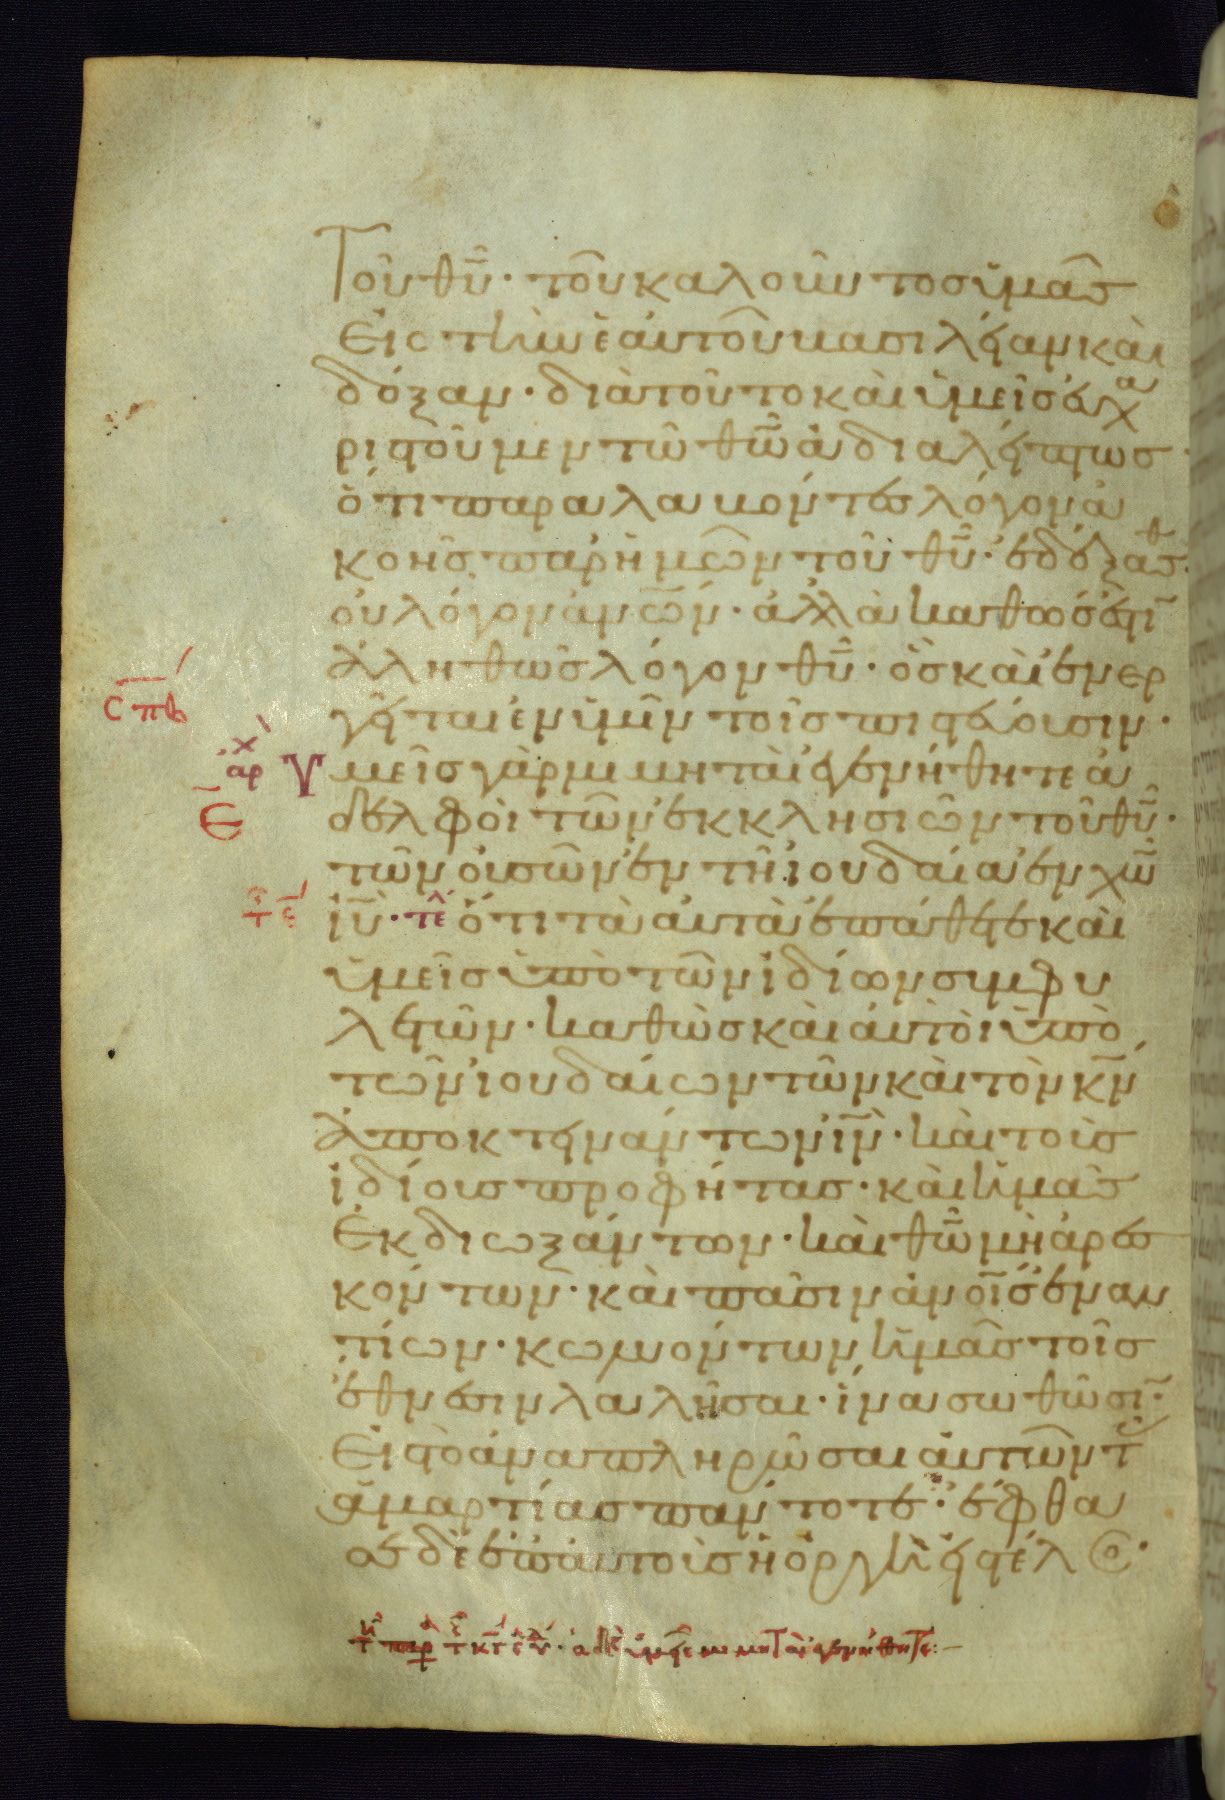 Τοῦ θῦ· τοῦ καλοῦντοσ ὑμᾶσ
εἰς τὴν ἑαυτοῦ βασιλείαν καὶ
δόξαν· διὰ τοῦτο καὶ ὑμεῖσ εὐχα
ριστοῦμεν τῶ θῶ ἀδιαλείπτωσ·
ὅτι παραλαβόντεσ λόγον ἀ
κοῆσ παρ ἡμῶν τοῦ θῦ· ἐδέξασθ
οὐ λόγον ἀνῶν· ἀλλὰ καθώσ ἐστῑ
ἀληθῶσ λόγον θῦ· ὃσ καὶ ἐνερ
γεῖται ἐν ὑμῖν τοῖσ πιστεύουσιν·
σπβ
ἀρχ Ὑμεῖσ γὰρ μιμηταὶ ἐγενήθητε ἀ
Ε δελφοὶ τῶν ἐκκλησιῶν τοῦ θῦ·
τῶν οὐσῶν ἐν τῆ ἰουδαία ἐν χῶ
ἰῦ· τε ὅτι τὰ αὐτὰ ἐπάθετε καὶ
ὑμεῖσ ὑπὸ τῶν ἰδίων συμφυ
λετῶν· καθὼσ καὶ αὐτοὶ ὑπὸ
τῶν ἰουδαίων τῶν καὶ τὸν κν
ἀποκτεινάντων ιν· καὶ τοὺσ
ἰδίουσ προφήτασ· καὶ ἡμᾶσ
ἐκδιωξάντων· καὶ θῶ μὴ ἀρεσ
κόντων· καὶ πᾶσιν ἀνοισ ἐναν
τίων· κωλυόντων ἡμᾶσ τοῖσ
ἔθνεσιν λαλῆσαι· ἵνα σωθῶσῑ·
εἰσ τὸ ἀναπληρῶσαι αὐτῶν τ
ἁμαρτίασ πάντοτε· ἔφθα
σε δὲ ἐπ αὐτοὺσ ἡ ὀργὴ εἰσ τέλο·